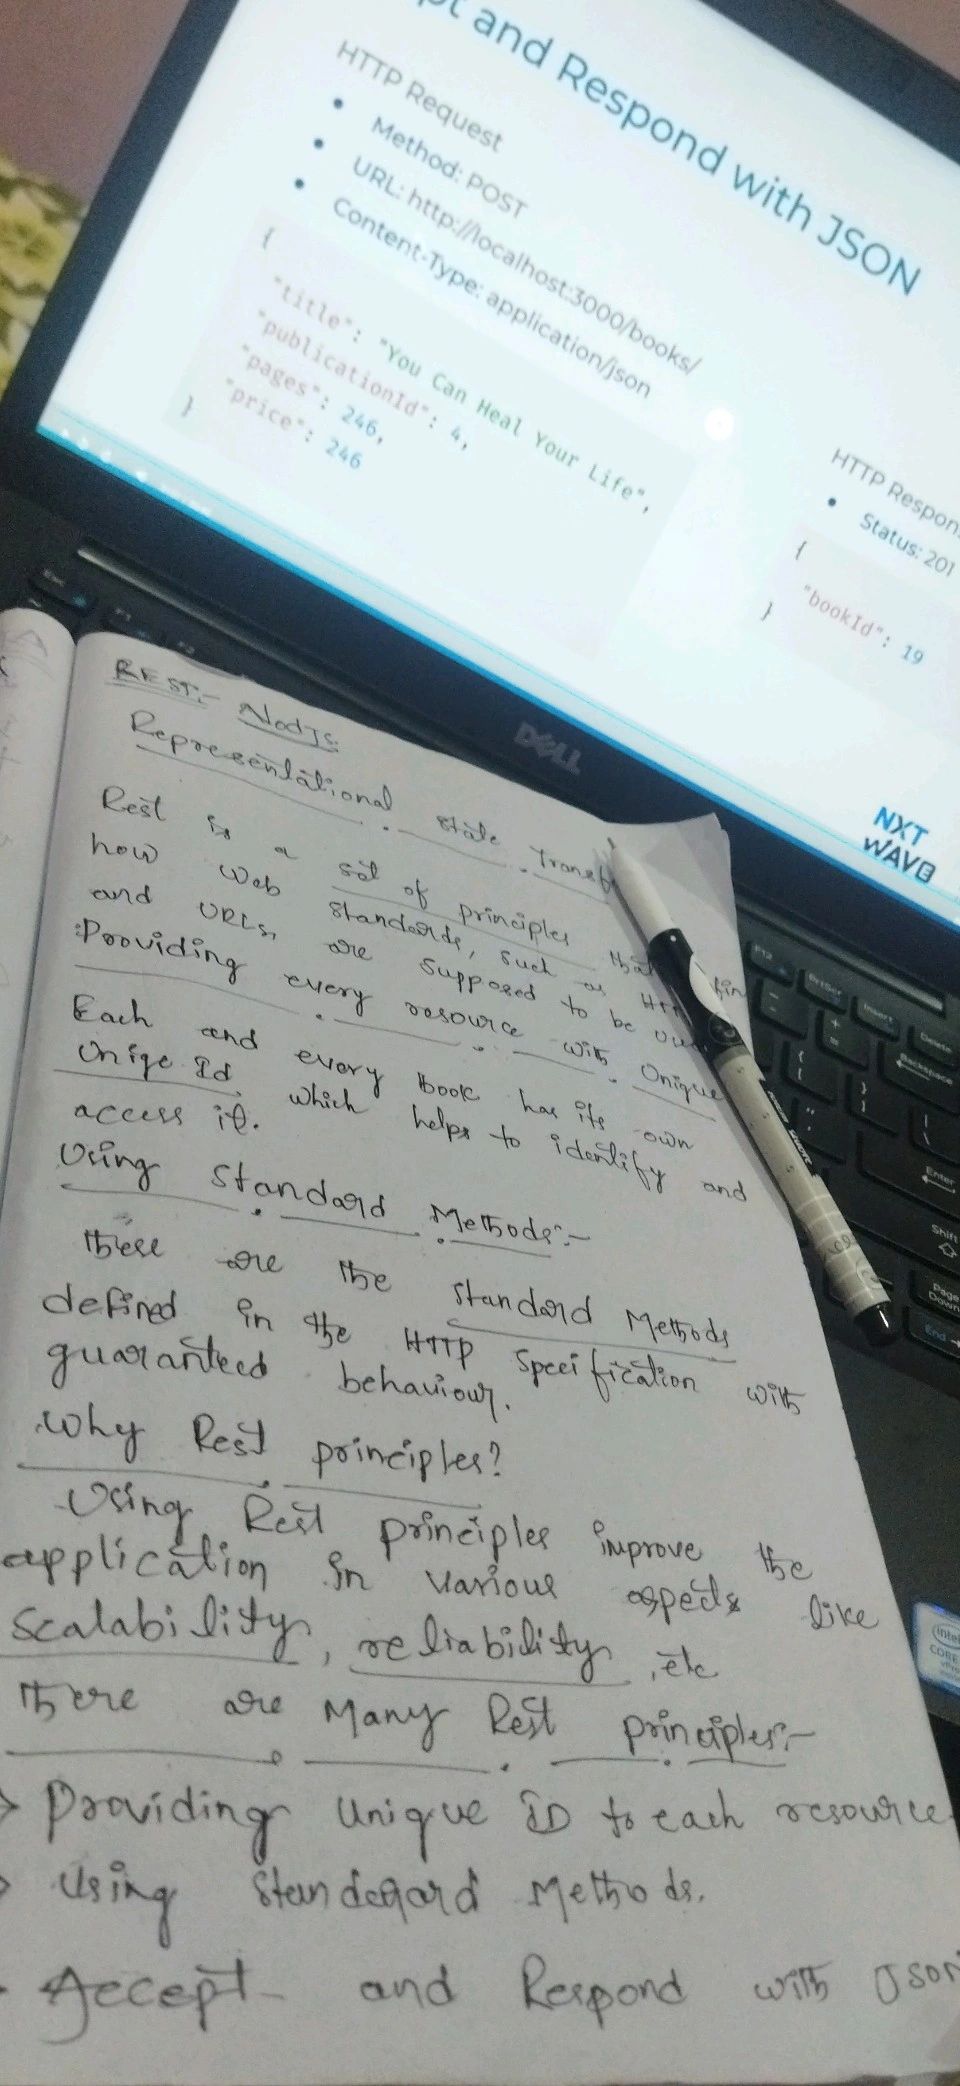 pt and Respond with JSON
HTTP Request
• Method: POST
• URL: http://localhost:3000/books/
• Content-Type: application/json
{
"title": "You Can Heal Your Life",
"publicationId": 4,
"pages": 246,
"price": 246
}
HTTP Respon
• Status: 201
{
"bookId": 19
}
NXT
WAVE
DELL
Esc
F1
F2
F12
PrtScr
Insert
Delete
Backspace
Enter
Shift
Page
Down
End
intel
CORE
REST:- NodJs
Representational State Transf
Rest is a set of principles that
how Web standards, such as HTT
and URLs, are supposed to be use
:Providing every resource with Unique
Each and every book has its own
Uniqe Id which helps to identify and
access it.
Using Standard Methods:-
these are the Standard Methods
defined in the HTTP specification with
guaranteed behaviour.
Why Rest principles?
Using Rest principles improve the
application in various aspects like
scalability, reliability, etc
there are Many Rest principles:-
> Providing Unique ID to each resource
> Using Standard Methods.
- Accept and Respond with Json